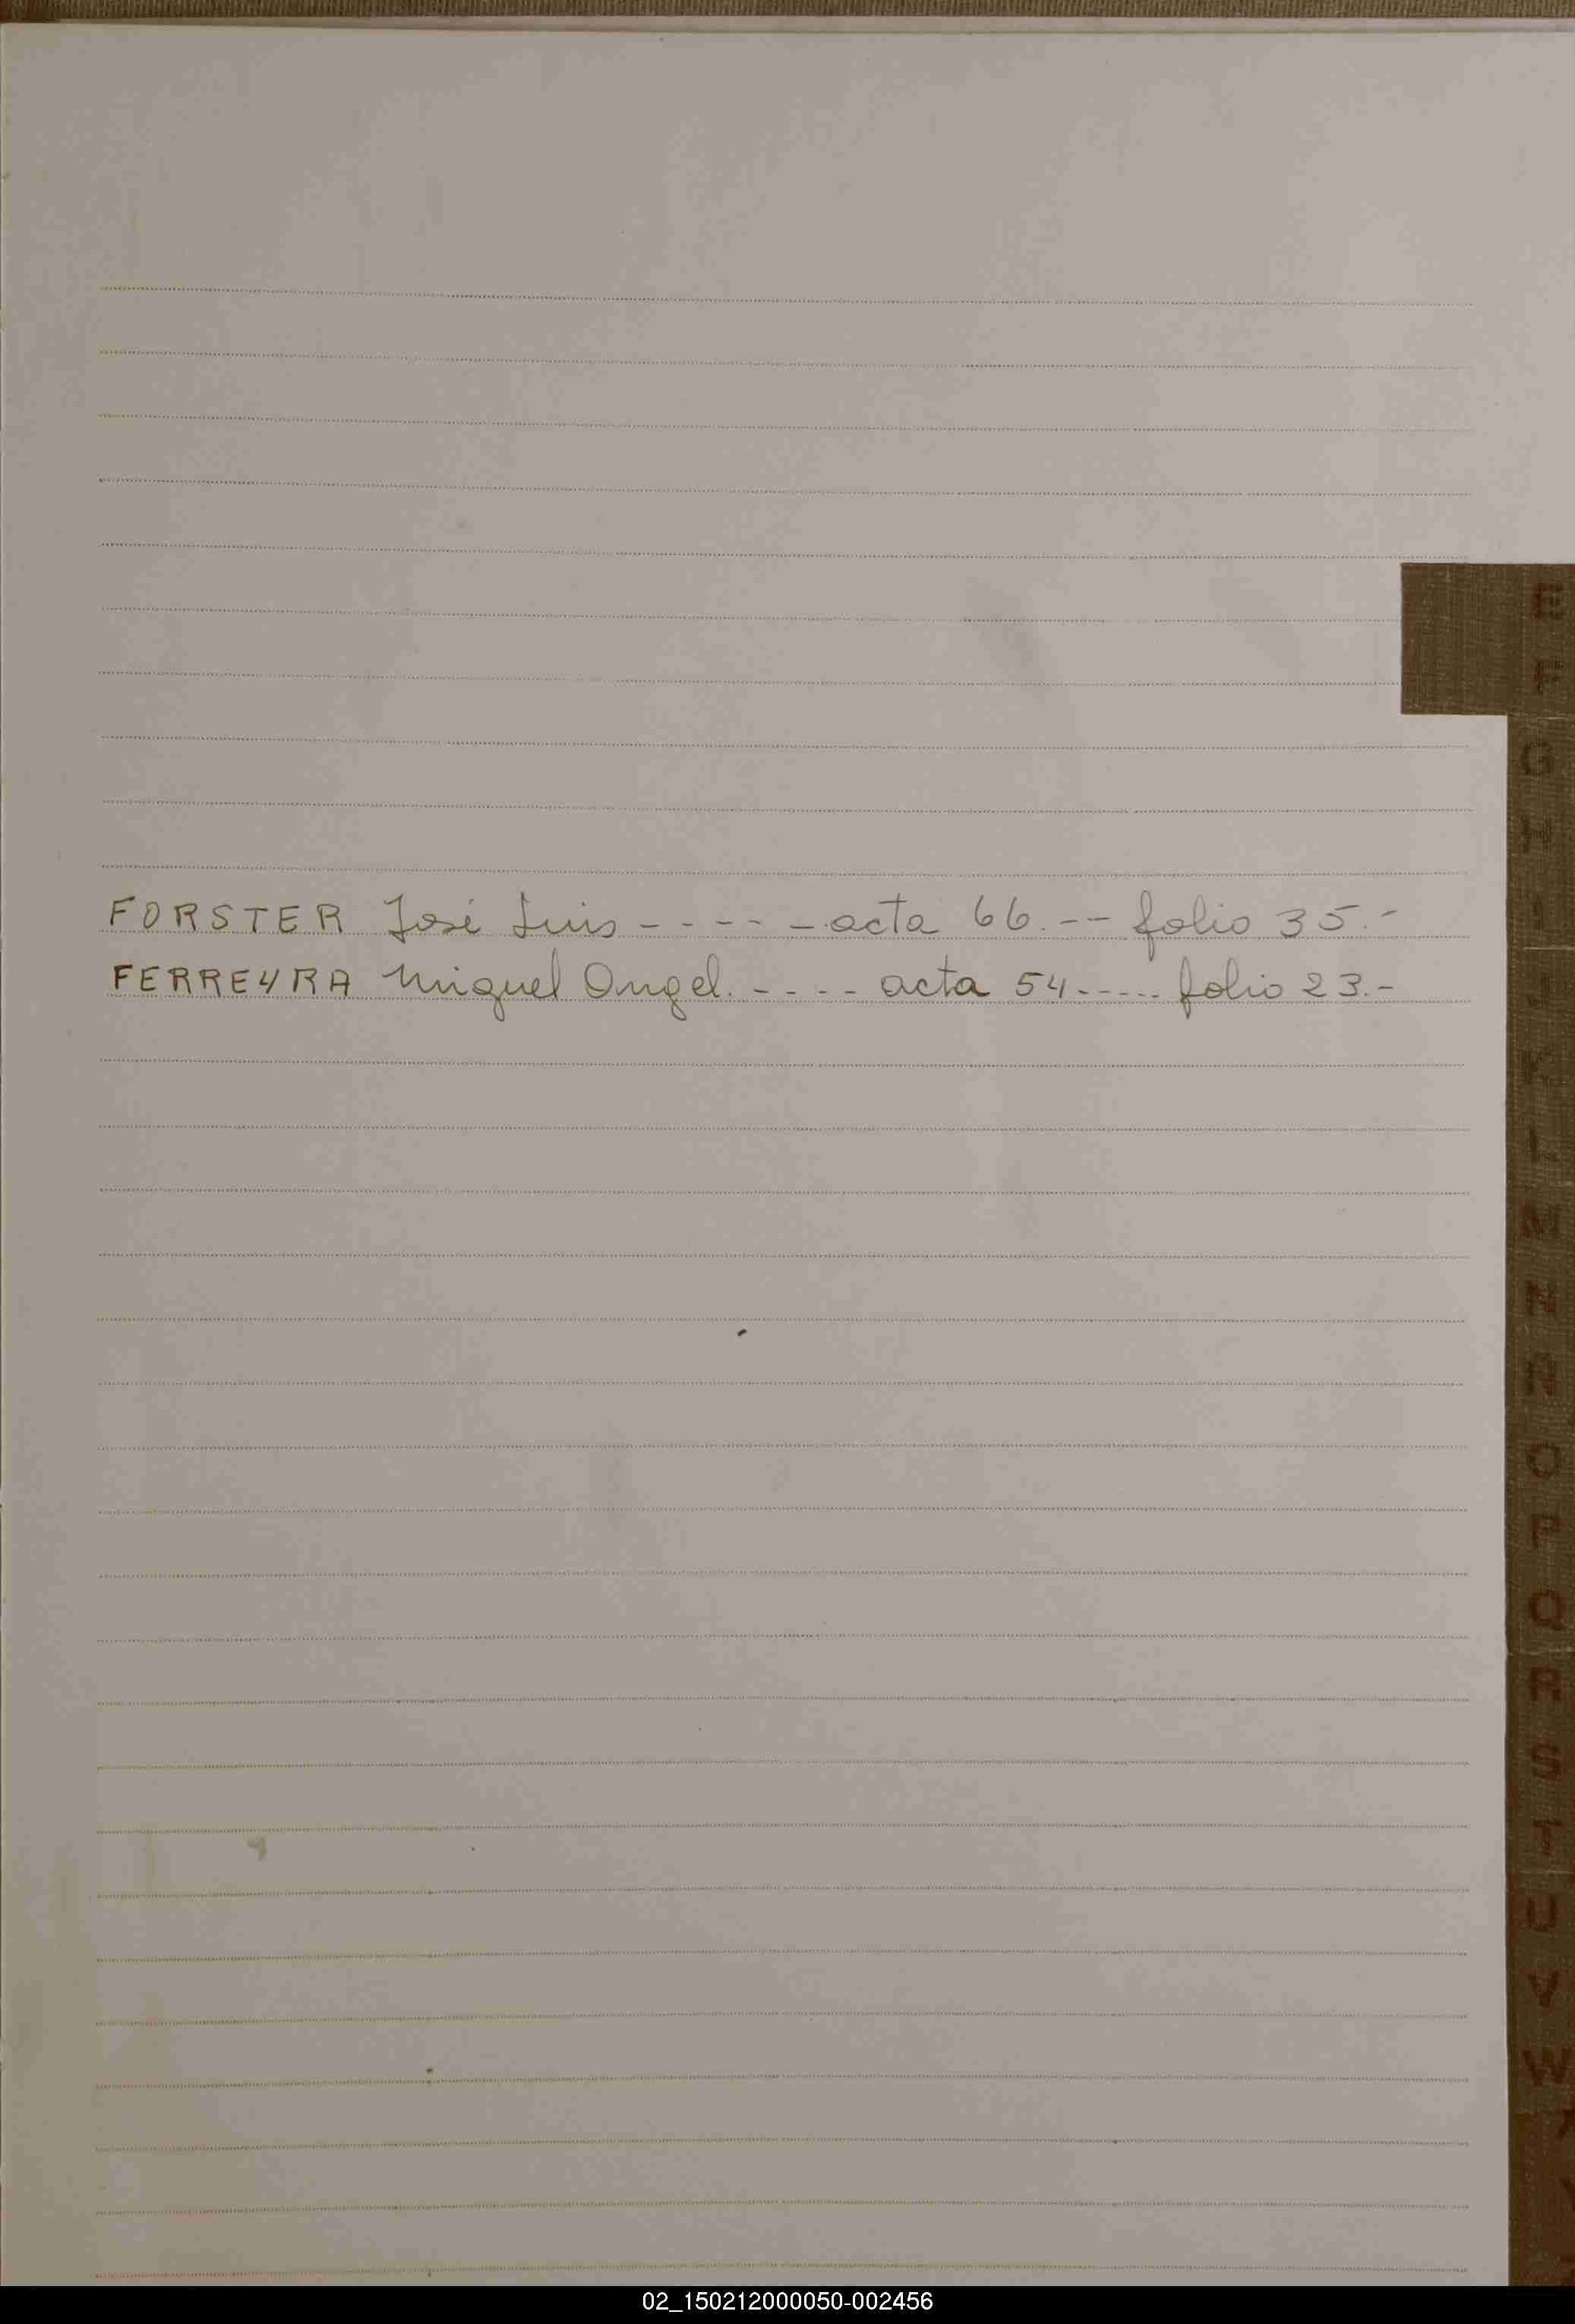 E
F
G
H
I
J
K
L
M
N
Ñ
O
P
Q
R
S
T
U
V
W
FORSTER José Luis - - - - - acta 66. -- folio 35.-
FERREYRA Miguel Angel. - - - - acta 54 ----- folio 23.-
02_150212000050-002456